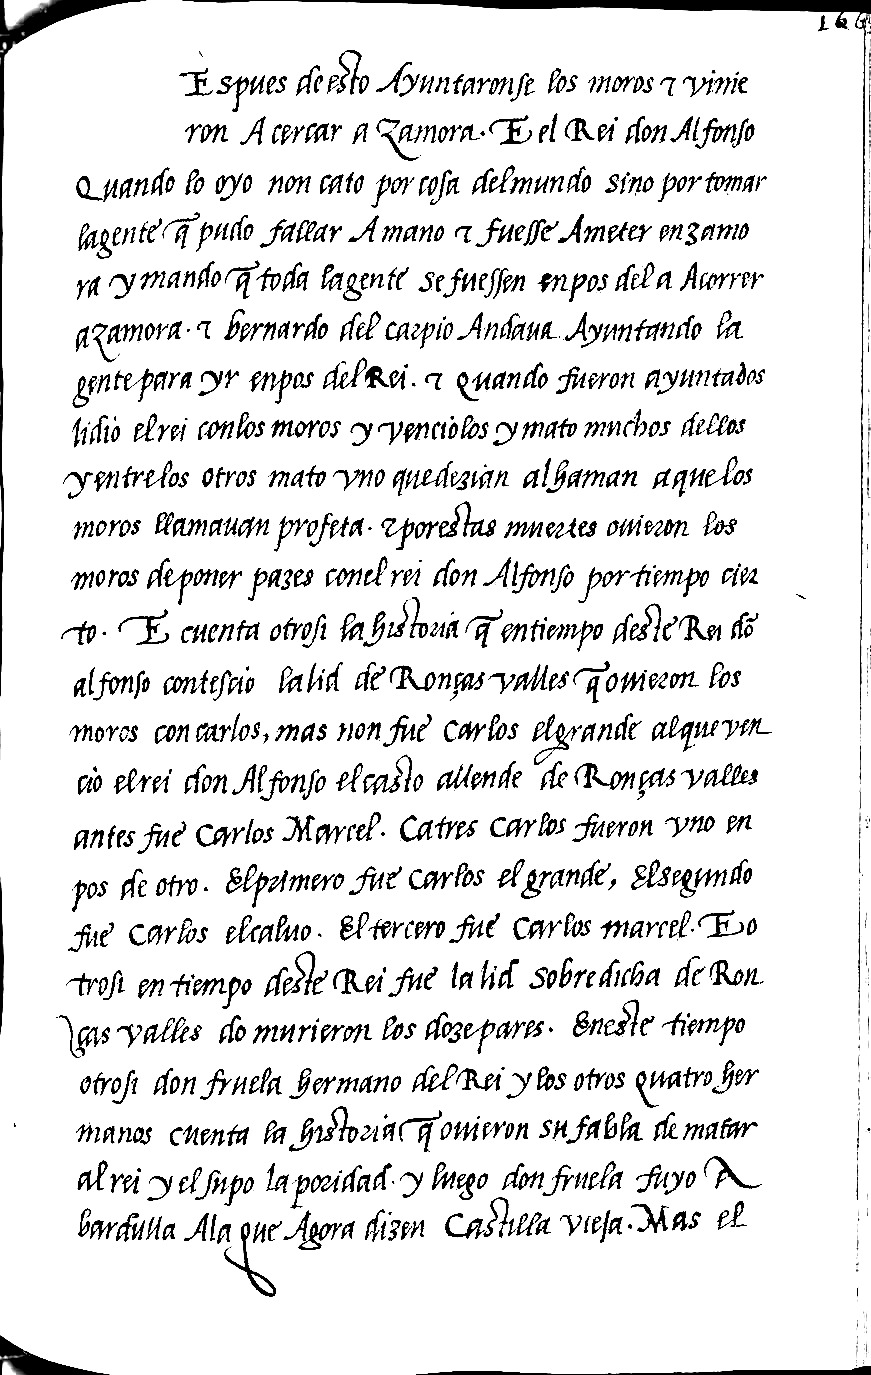 166
Espues de esto Ayuntaronse los moros ⁊ vinie
ron A cercar a Zamora. E el Rei don Alfonso
Quando lo oyo non cato por cosa del mundo sino por tomar
la gente q̃ pudo fallar A mano ⁊ fuesse Ameter en zamo
ra y mando q̃ toda la gente se fuessen en pos del a Acorrer
a Zamora. ⁊ bernardo del carpio Andaua Ayuntando la
gente para yr en pos del Rei. ⁊ quando fueron ayuntados
lidio el rei con los moros y venciolos y mato muchos dellos
y entre los otros mato vno que dezian alhaman a que los
moros llamauan profeta. ⁊ por estas muertes ouieron los
moros de poner pazes con el rei don Alfonso por tiempo cier
to. E cuenta otrosi la historia q̃ en tiempo deste Rei dõ
alfonso contescio la lid de Ronças valles q̃ ouieron los
moros con carlos, mas non fue Carlos el grande al que ven
cio el rei don Alfonso el casto allende de Ronças valles
antes fue Carlos Marcel. Ca tres Carlos fueron vno en
pos de otro. El primero fue Carlos el grande, El segundo
fue Carlos el caluo. El tercero fue Carlos marcel. E o
trosi en tiempo deste Rei fue la lid sobredicha de Ron
ças valles do murieron los doze pares. En este tiempo
otrosi don fruela hermano del Rei y los otros quatro her
manos cuenta la historia q̃ ouieron su fabla de matar
al rei y el supo la poridad. y luego don fruela fuyo A
bardulla A la que Agora dizen Castilla vieja. Mas el